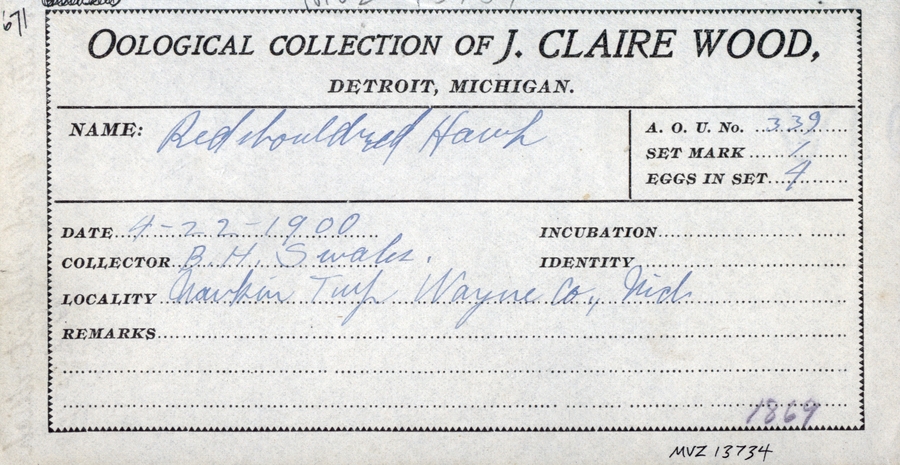 '671
OOLOGICAL COLLECTION OF J. CLAIRE WOOD,
DETROIT, MICHIGAN.
NAME: Redshouldred Hawk
A. O. U. No. 339
SET MARK 1
EGGS IN SET 4
DATE 4-22-1900
INCUBATION
COLLECTOR B. H. Swales.
IDENTITY
LOCALITY Nankin Twp Wayne Co., Mich
REMARKS
1869
MVZ 13734